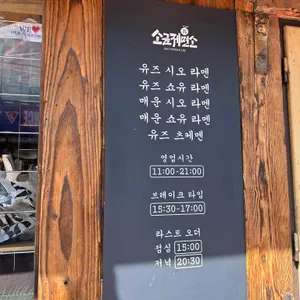 소코제면소
유즈 시오 라멘
유즈 쇼유 라멘
매운 시오 라멘
매운 쇼유 라멘
유즈 츠케멘
영업시간
11:00-21:00
브레이크 타임
15:30-17:00
라스트 오더
점심 15:00
저녁 20:30